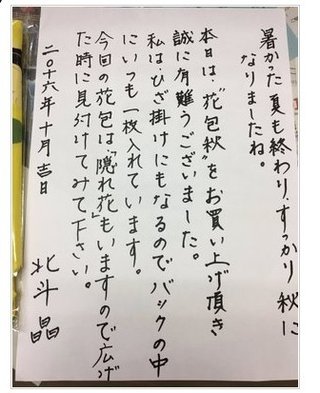 暑かった夏も終わり、すっかり秋に
なりましたね。
本日は、"花包秋"をお買い上げ頂き
誠に有難うございました。
私は、ひざ掛けにもなるのでバックの中
にいつも一枚入れています。
今回の花包は、「隠れ花」もいますので広げ
た時に見付けてみて下さい。
二〇十六年十月吉日
北斗晶